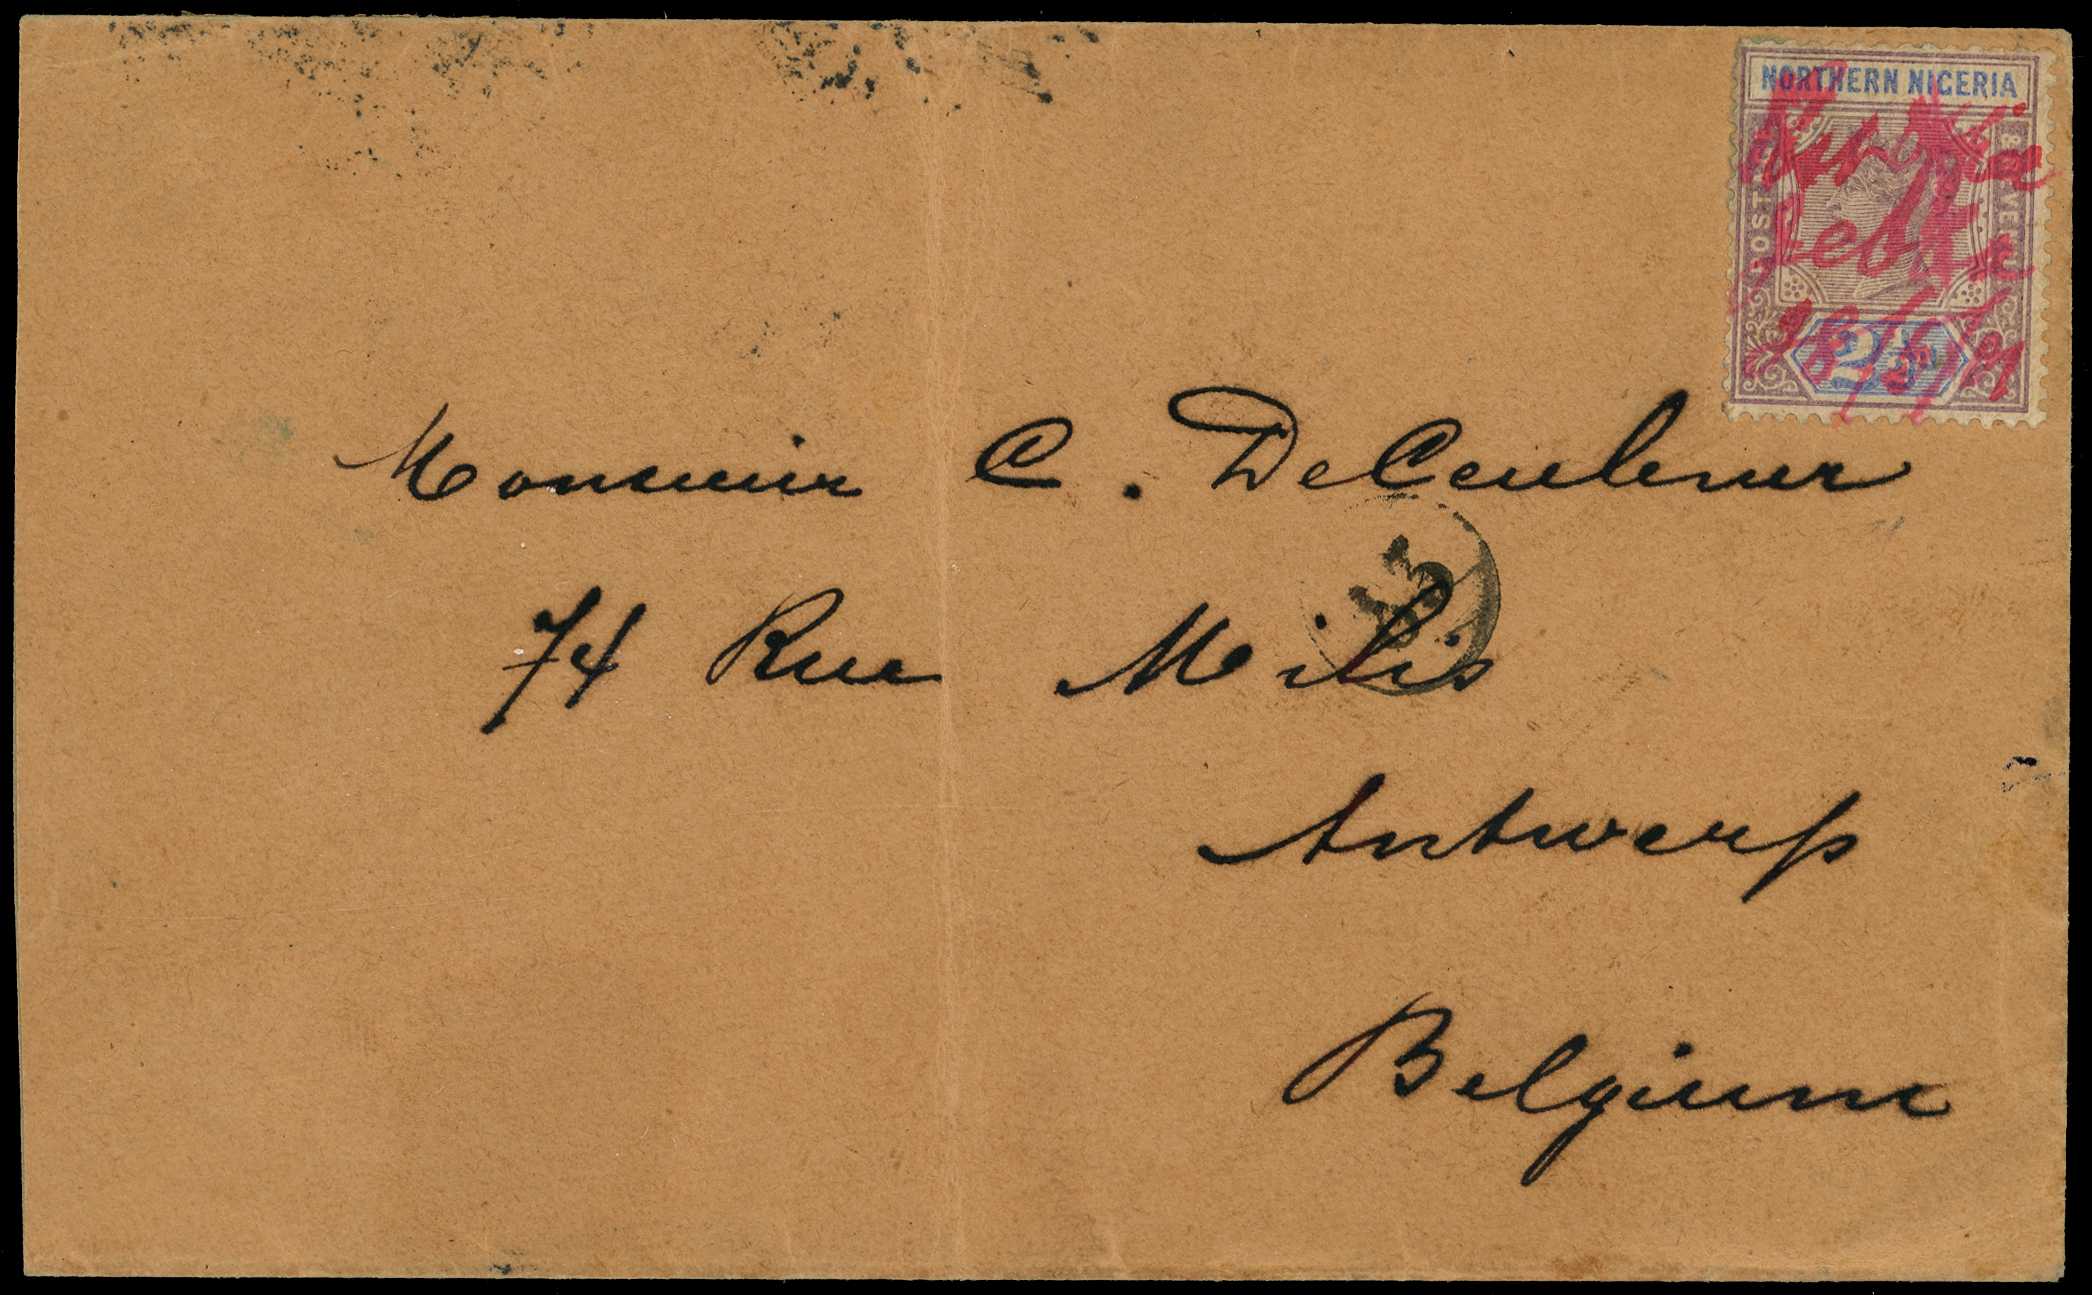 NORTHERN NIGERIA
POSTAGE & REVENUE
2½d
Monsieur C. De Ceuleneer
74 Rue Milis
Antwerp
Belgium